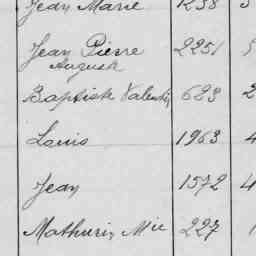 Jean Marie 1238 3
Jean Pierre 2251 5
Auguste
Baptiste Valentin 623 2
Louis 1963 4
Jean 1572 4
Mathurin Mie 227 1